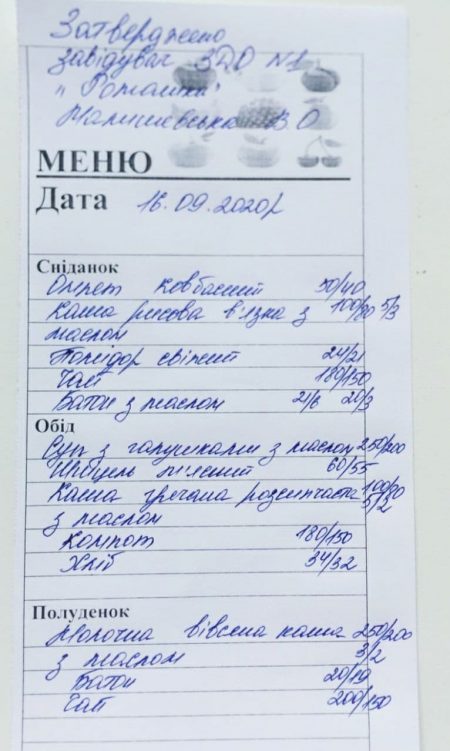 Затверджено
завідувач ЗДО №1
„Ромашка"
В.О
МЕНЮ
Дата 16.09.2020р
Сніданок
Омлет ковбасний 50/40
Каша рисова в'язка з 100/80 5/3
маслом
Помідор свіжий 24/21
Чай 180/150
Батон з маслом 21/6 20/3
Обід
Суп з галушками з маслом 250/200
Шніцель м'ясний 60/55
Каша гречана розсипчаста 100/80
з маслом 5/2
Компот 180/150
Хліб 34/32
Полуденок
Молочна вівсяна каша 250/200
з маслом 3/2
Батон 20/19
Чай 200/150